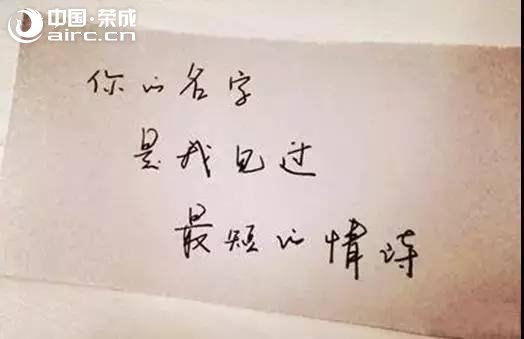 中国·荣成
airc.cn
你的名字
是我见过
最短的情诗